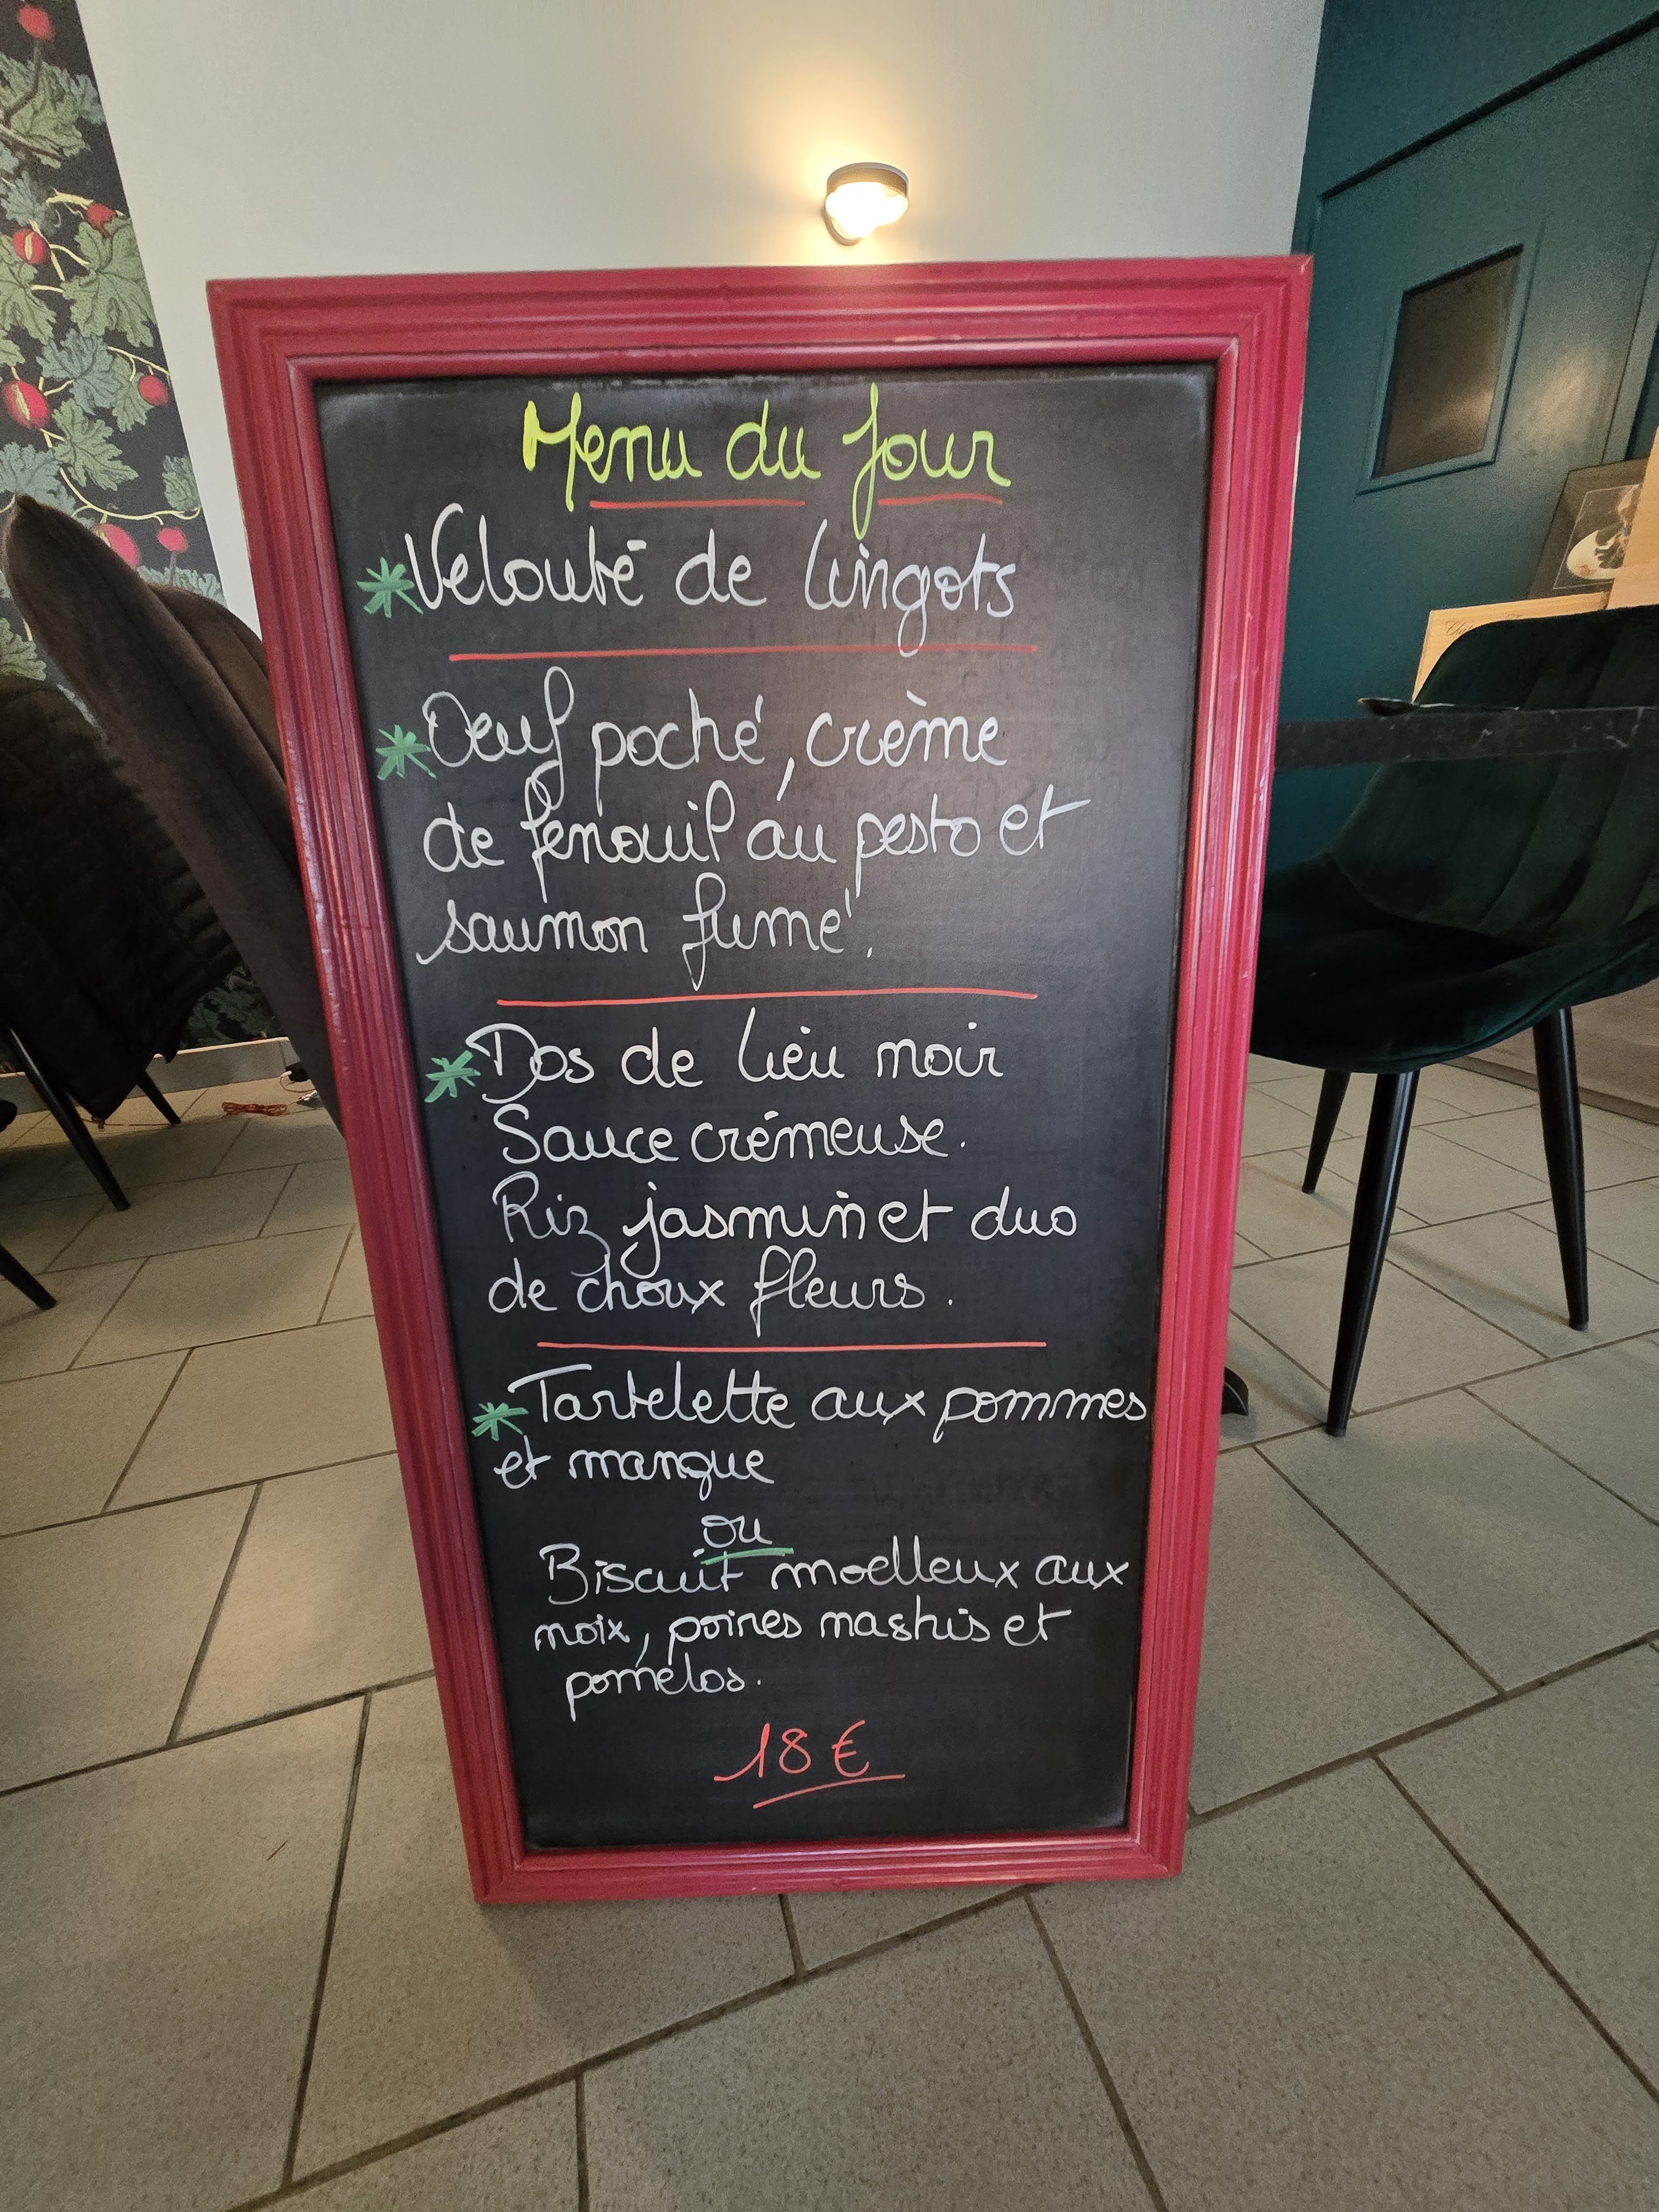 Menu du Jour
*Velouté de lingots
*Oeuf poché, crème
de fenouil au pesto et
saumon fumé.
*Dos de lieu noir
Sauce crémeuse.
Riz jasmin et duo
de choux fleurs.
*Tartelette aux pommes
et mangue
ou
Biscuit moelleux aux
noix, poires nashis et
pomélos.
18 €